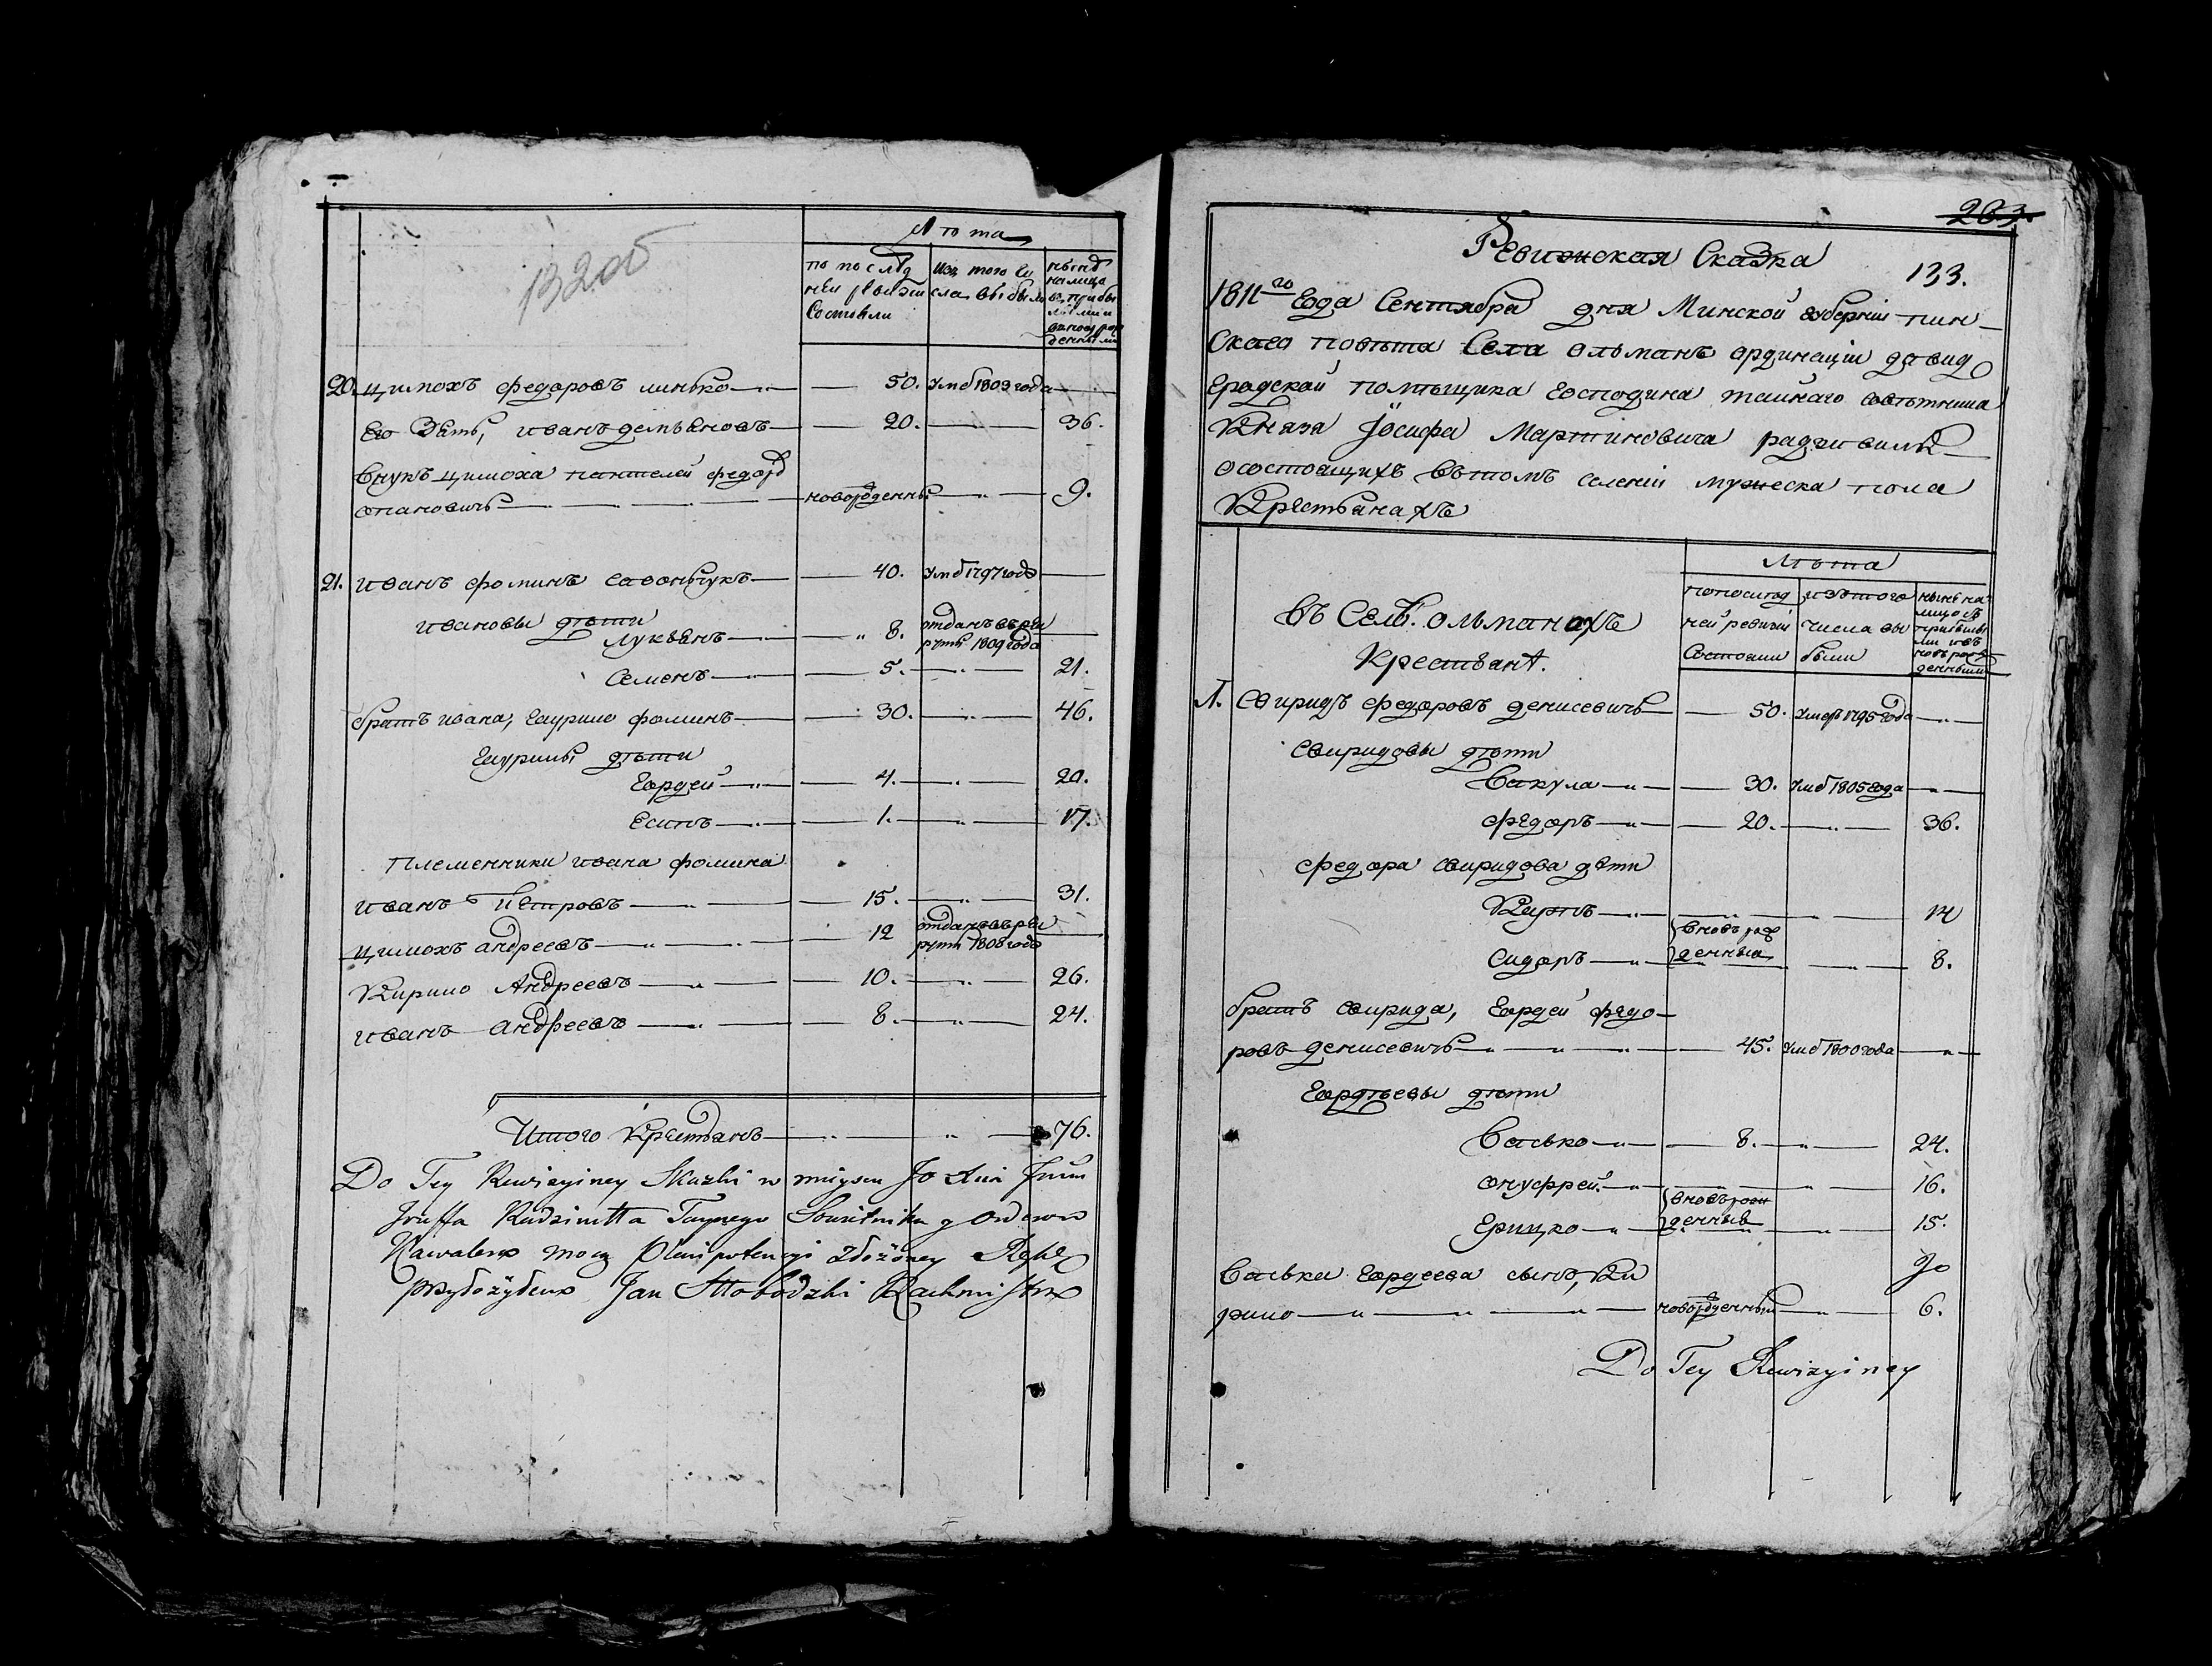 132 об
Лѣта
по послѣд
ней ревизіи
Состояли
изъ того чи
сла выбыло
нынѣ
на лицо
20. цимохъ федоровъ минько — 50. Умѣ 1809 года
Его Зать, иванъ демьяновъ — 20. — 36.
Внукъ цимоха пантелей федоро
опановичъ — новорожденны — 9.
21. иванъ фоминъ савоньчукъ — 40. Умѣ 1797 года
ивановы дѣти
Лукьянъ — 8. отданъ въ рек
руты 1809 года
Семенъ — 5. — 21.
братъ ивана, Гаурило фоминъ — 30. — 46.
Гаурилы дѣти
Гордей — 4. — 20.
Есипъ — 1. — 17.
племенники ивана фомина
иванъ Петровъ — 15. — 31.
цимохъ андреевъ — 12 отданъ въ рек
руты 1808 года
Кирило Андреевъ — 10. — 26.
иванъ андреевъ — 8. — 24.
Итого Крестьянъ — 76.
Do Tey Rewizyiney Skazki w mieyscu Jo Xcia Jmci
Juzffa Radziwiłła Taynego Sowietnika y Orderow
Kawalera mocą Plenipotencyi złożoney Rękę
przyłożyłem Jan Słobodzki Rachmistrz
263.
Ревижская Сказка
133.
1811го Года Сентября дня Минской губерніи пин-
Скаго повѣта Села ольманъ ординаціи давид
Градской помѣщика Господина тайнаго совѣтника
Князя Іосифа Мартиновича радзивила
о состоящихъ въ томъ селеніи мужеска пола
Крестьянахъ
Лѣта
въ Селѣ ольманахъ
Крестьянъ.
по послѣд
ней ревизіи
Состояли
изъ того
числа вы
были
нынѣ на
лицо съ
прибылы
ми и въ
новь рож
денными
1. Свиридъ федоровъ денисевичъ — 50. Умеръ 1795 года
Свиридовы дѣти
Вакула — 30. Умѣ 1805 Года
федоръ — 20. — 36.
федора свиридова дѣти
Карпъ — 14
вновь рож
денныя
Сидоръ — 8.
братъ свирида, Гордей федо-
ровъ денисевичъ — 45. Умѣ 1800 года
Гордѣевы дѣти
Васько — 8. — 24.
онуфрей — 16.
вновь рож
денныя
Грицко — 15.
Васька Гордеева сынъ, Ки
рило — новорожденный — 6.
Jo
Do Tey Rewizyiney